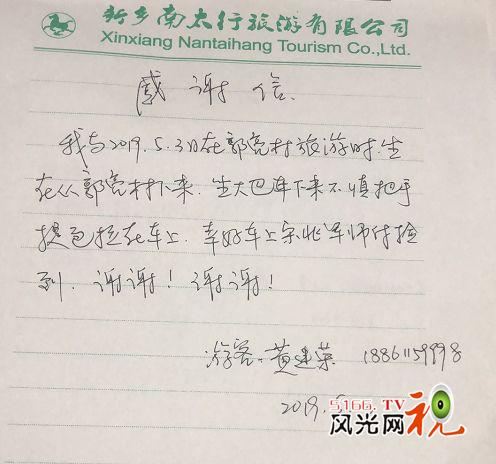 新乡南太行旅游有限公司
Xinxiang Nantaihang Tourism Co.,Ltd.
感谢信.
我与2019.5.3日在郭亮村旅游时.坐
在从郭亮村下来.坐大巴车下来不慎把手
提包拉在车上.幸好车上宋兆军师付捡
到.谢谢!谢谢!
游客.黄建荣 18861159998
2019.
5166.TV
风光网视